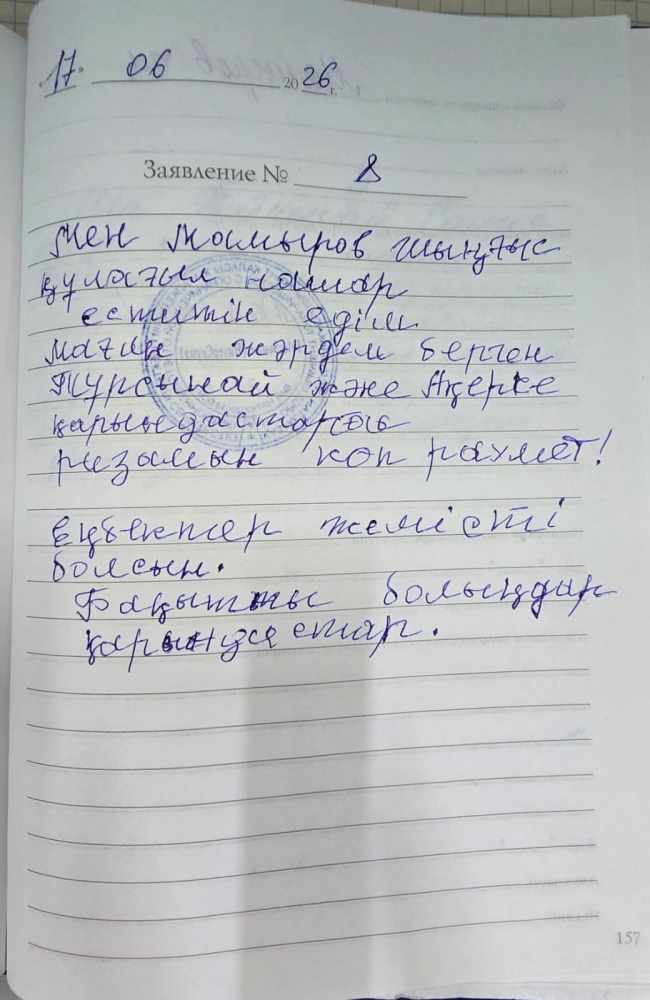 17. 06 2026 г.
Заявление № 8
Мен Жамыров Шыңғыс
құлағым нашар
еститін едім
маған жәрдем берген
Тұрсынай және Ақерке
қарындастарға
ризамын көп рахмет!
Еңбектер жемісті
болсын.
Бақытты болыңдар
қарындастар.
157